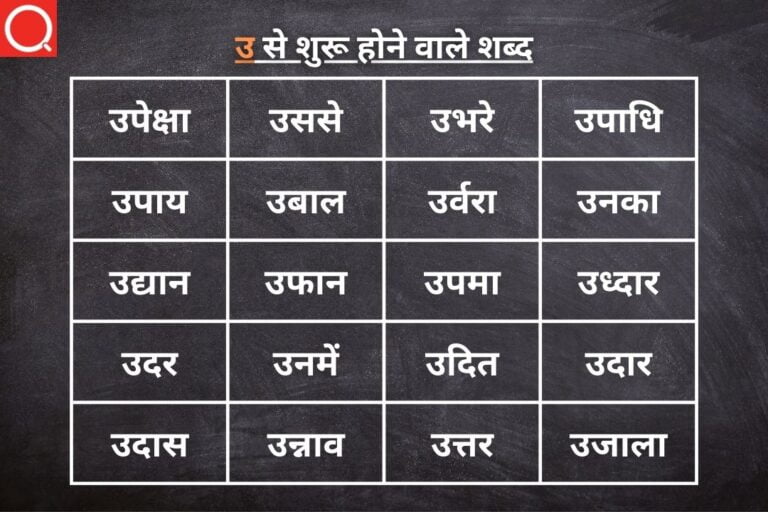 उ से शुरू होने वाले शब्द
उपेक्षा उससे उभरे उपाधि
उपाय उबाल उर्वरा उनका
उद्यान उफान उपमा उध्दार
उदर उनमें उदित उदार
उदास उन्नाव उत्तर उजाला